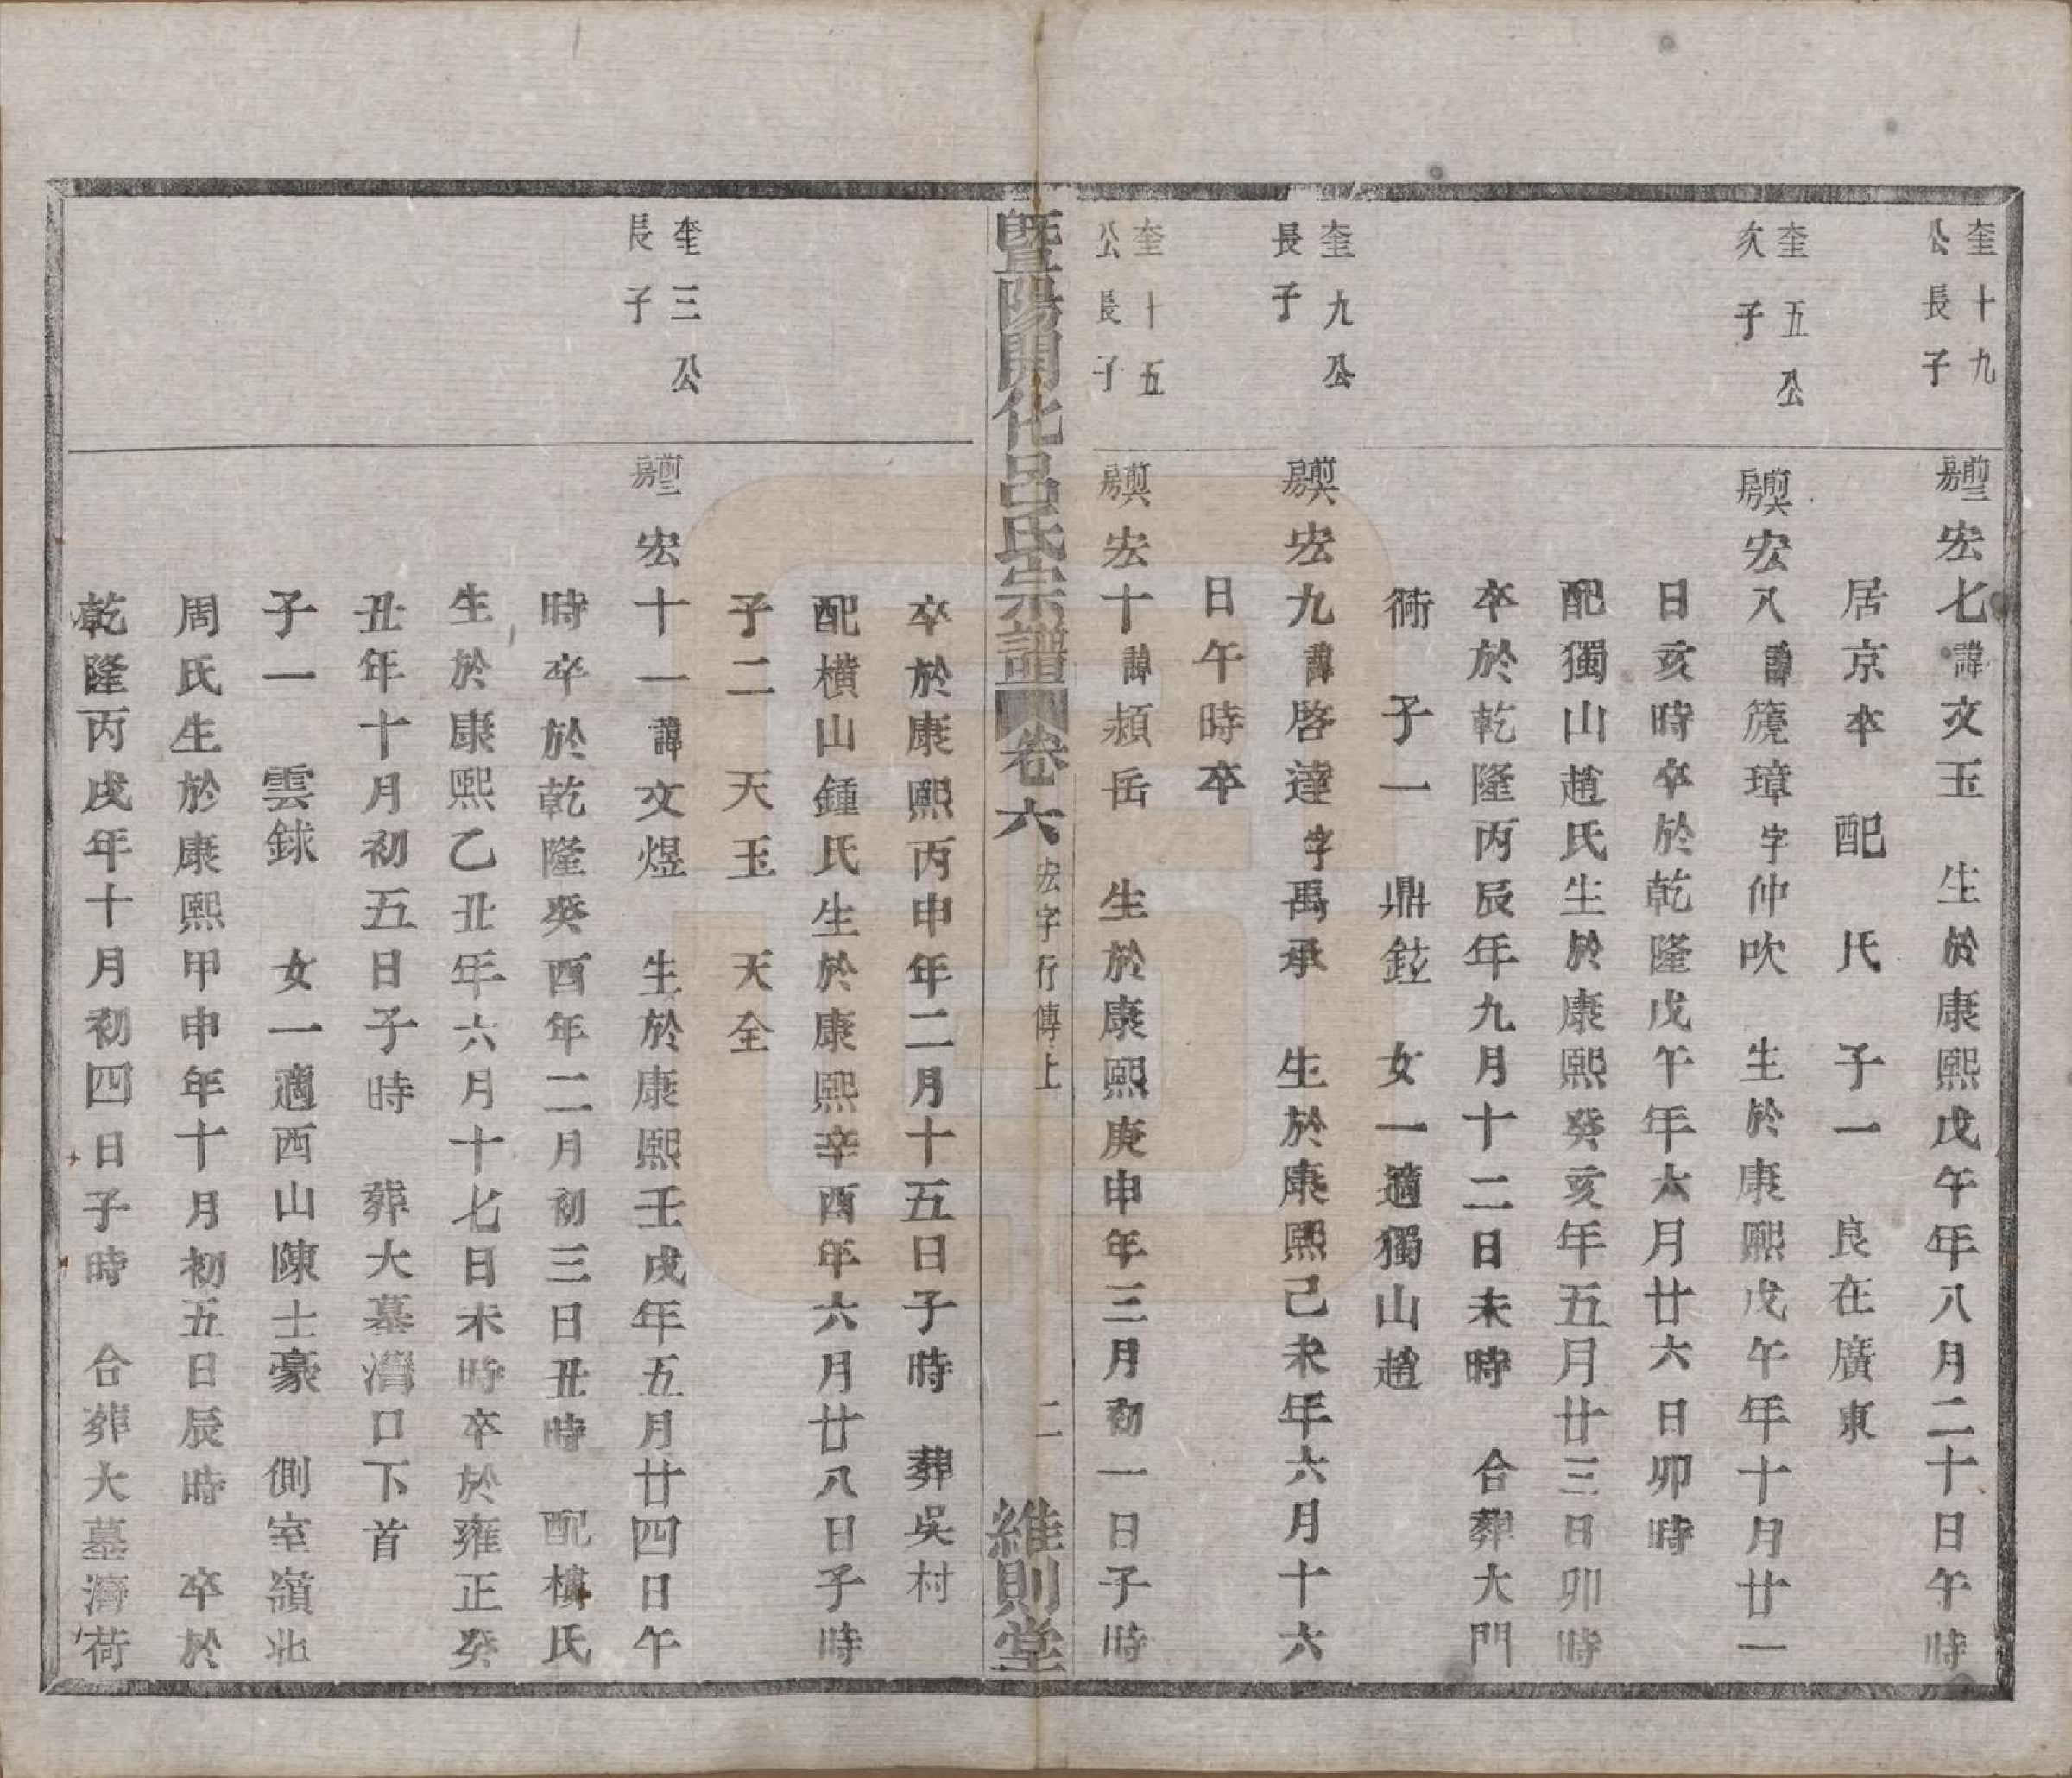 奎十九
公長子
宏七諱文玉　生於康熙戊午年八月二十日午時
居京卒　配　氏　子一　良在廣東
奎五公
次子
宏八諱箎璋字仲吹　生於康熙戊午年十月廿一
日亥時卒於乾隆戊午年六月廿六日卯時
配獨山趙氏生於康熙癸亥年五月廿三日卯時
卒於乾隆丙辰年九月十二日未時　合葬大門
衕　子一　鼎鉉　女一適獨山趙
奎九公
長子
宏九諱啓達字禹承　生於康熙己未年六月十六
日午時卒
奎十五
公長子
宏十諱潁岳　生於康熙庚申年三月初一日子時
暨陽開化呂氏宗譜　卷六　宏字行傳上　二　維則堂
卒於康熙丙申年二月十五日子時　葬吳村
配橫山鍾氏生於康熙辛酉年六月廿八日子時
子二　天玉　天全
奎三公
長子
宏十一諱文煜　生於康熙壬戌年五月廿四日午
時卒於乾隆癸酉年二月初三日丑時　配樓氏
生於康熙乙丑年六月十七日未時卒於雍正癸
丑年十月初五日子時　葬大墓濟口下首
子一　雲銶　女一適西山陳士豪　側室嶺北
周氏生於康熙甲申年十月初五日辰時　卒於
乾隆丙戌年十月初四日子時　合葬大墓濟荷